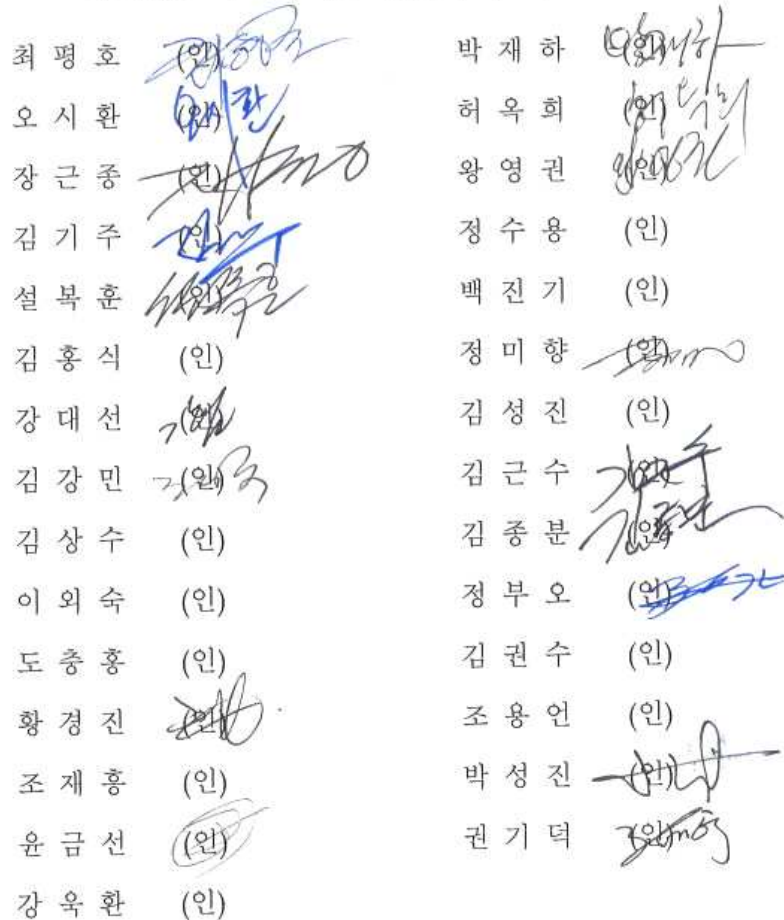 최 평 호 (인)
오 시 환 (인)
장 근 종 (인)
김 기 주 (인)
설 복 훈 (인)
김 홍 식 (인)
강 대 선 (인)
김 강 민 (인)
김 상 수 (인)
이 외 숙 (인)
도 충 홍 (인)
황 경 진 (인)
조 재 흥 (인)
윤 금 선 (인)
강 욱 환 (인)
박 재 하 (인)
허 옥 희 (인)
왕 영 권 (인)
정 수 용 (인)
백 진 기 (인)
정 미 향 (인)
김 성 진 (인)
김 근 수 (인)
김 종 분 (인)
정 부 오 (인)
김 권 수 (인)
조 용 언 (인)
박 성 진 (인)
권 기 덕 (인)